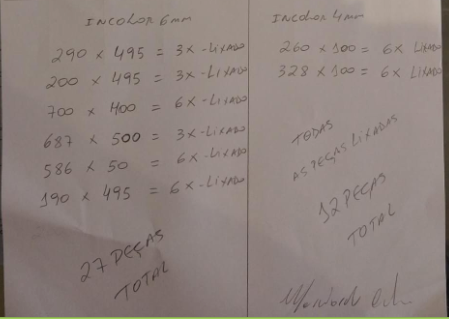 INCOLOR 6mm
290 x 495 = 3x - LIXADO
200 x 495 = 3x - LIXADO
700 x 400 = 6x - LIXADO
687 x 500 = 3x - LIXADO
586 x 50 = 6x - LIXADO
190 x 495 = 6x - LIXADO
27 PEÇAS
TOTAL
INCOLOR 4mm
260 x 100 = 6x LIXADO
328 x 100 = 6x LIXADO
TODAS
AS PEÇAS LIXADAS
12 PEÇAS
TOTAL